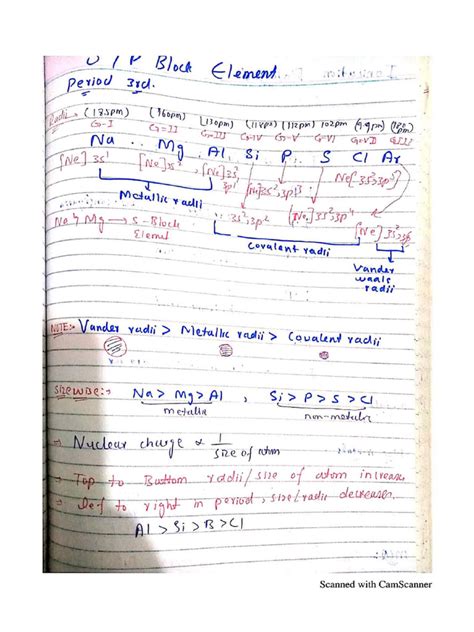 S / P Block Element.
Period 3rd.
Radii → (185pm) (160pm) (130pm) (118pm) (112pm) 102pm (99pm)
G-I G=II G-III G-IV G-V G-VI G-VII
Na .. Mg , Al , Si P S Cl Ar
[Ne] 3s¹ [Ne]3s² , [Ne]3s² 3p¹ [Ne]3s²,3p³ Ne[3s²,3p⁵
3s²,3p² [Ne] 3s²,3p⁴ [Ne] 3s²,3p⁶
Metallic radii
Na & Mg → S-Block
Element
Covalent radii
Vander
waals
radii
NOTE:- Vander radii > Metallic radii > Covalent radii
Size wise:→ Na > Mg > Al , Si > P > S > Cl
metallic non-metallic
→ Nuclear charge ∝ 1/size of atom
→ Top to Bottom radii/size of atom increase
→ Lef to right in period, size/radii decreases.
Al > Si > B > Cl
Scanned with CamScanner